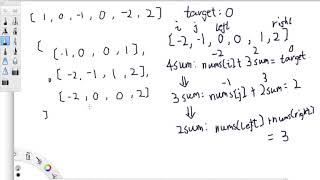 [ 1, 0, -1, 0, -2, 2 ] target: 0
i j left right
[ [-2, -1, 0, 0, 1, 2]
[-1, 0, 0, 1], -2 0
4sum: nums[i] + 3sum = target
, [-2, -1, 1, 2], ⇓ -1 3
3sum: nums[j] + 2sum = 2
[-2, 0, 0, 2] ⇓
] 2sum: nums[left] + nums[right]
= 3